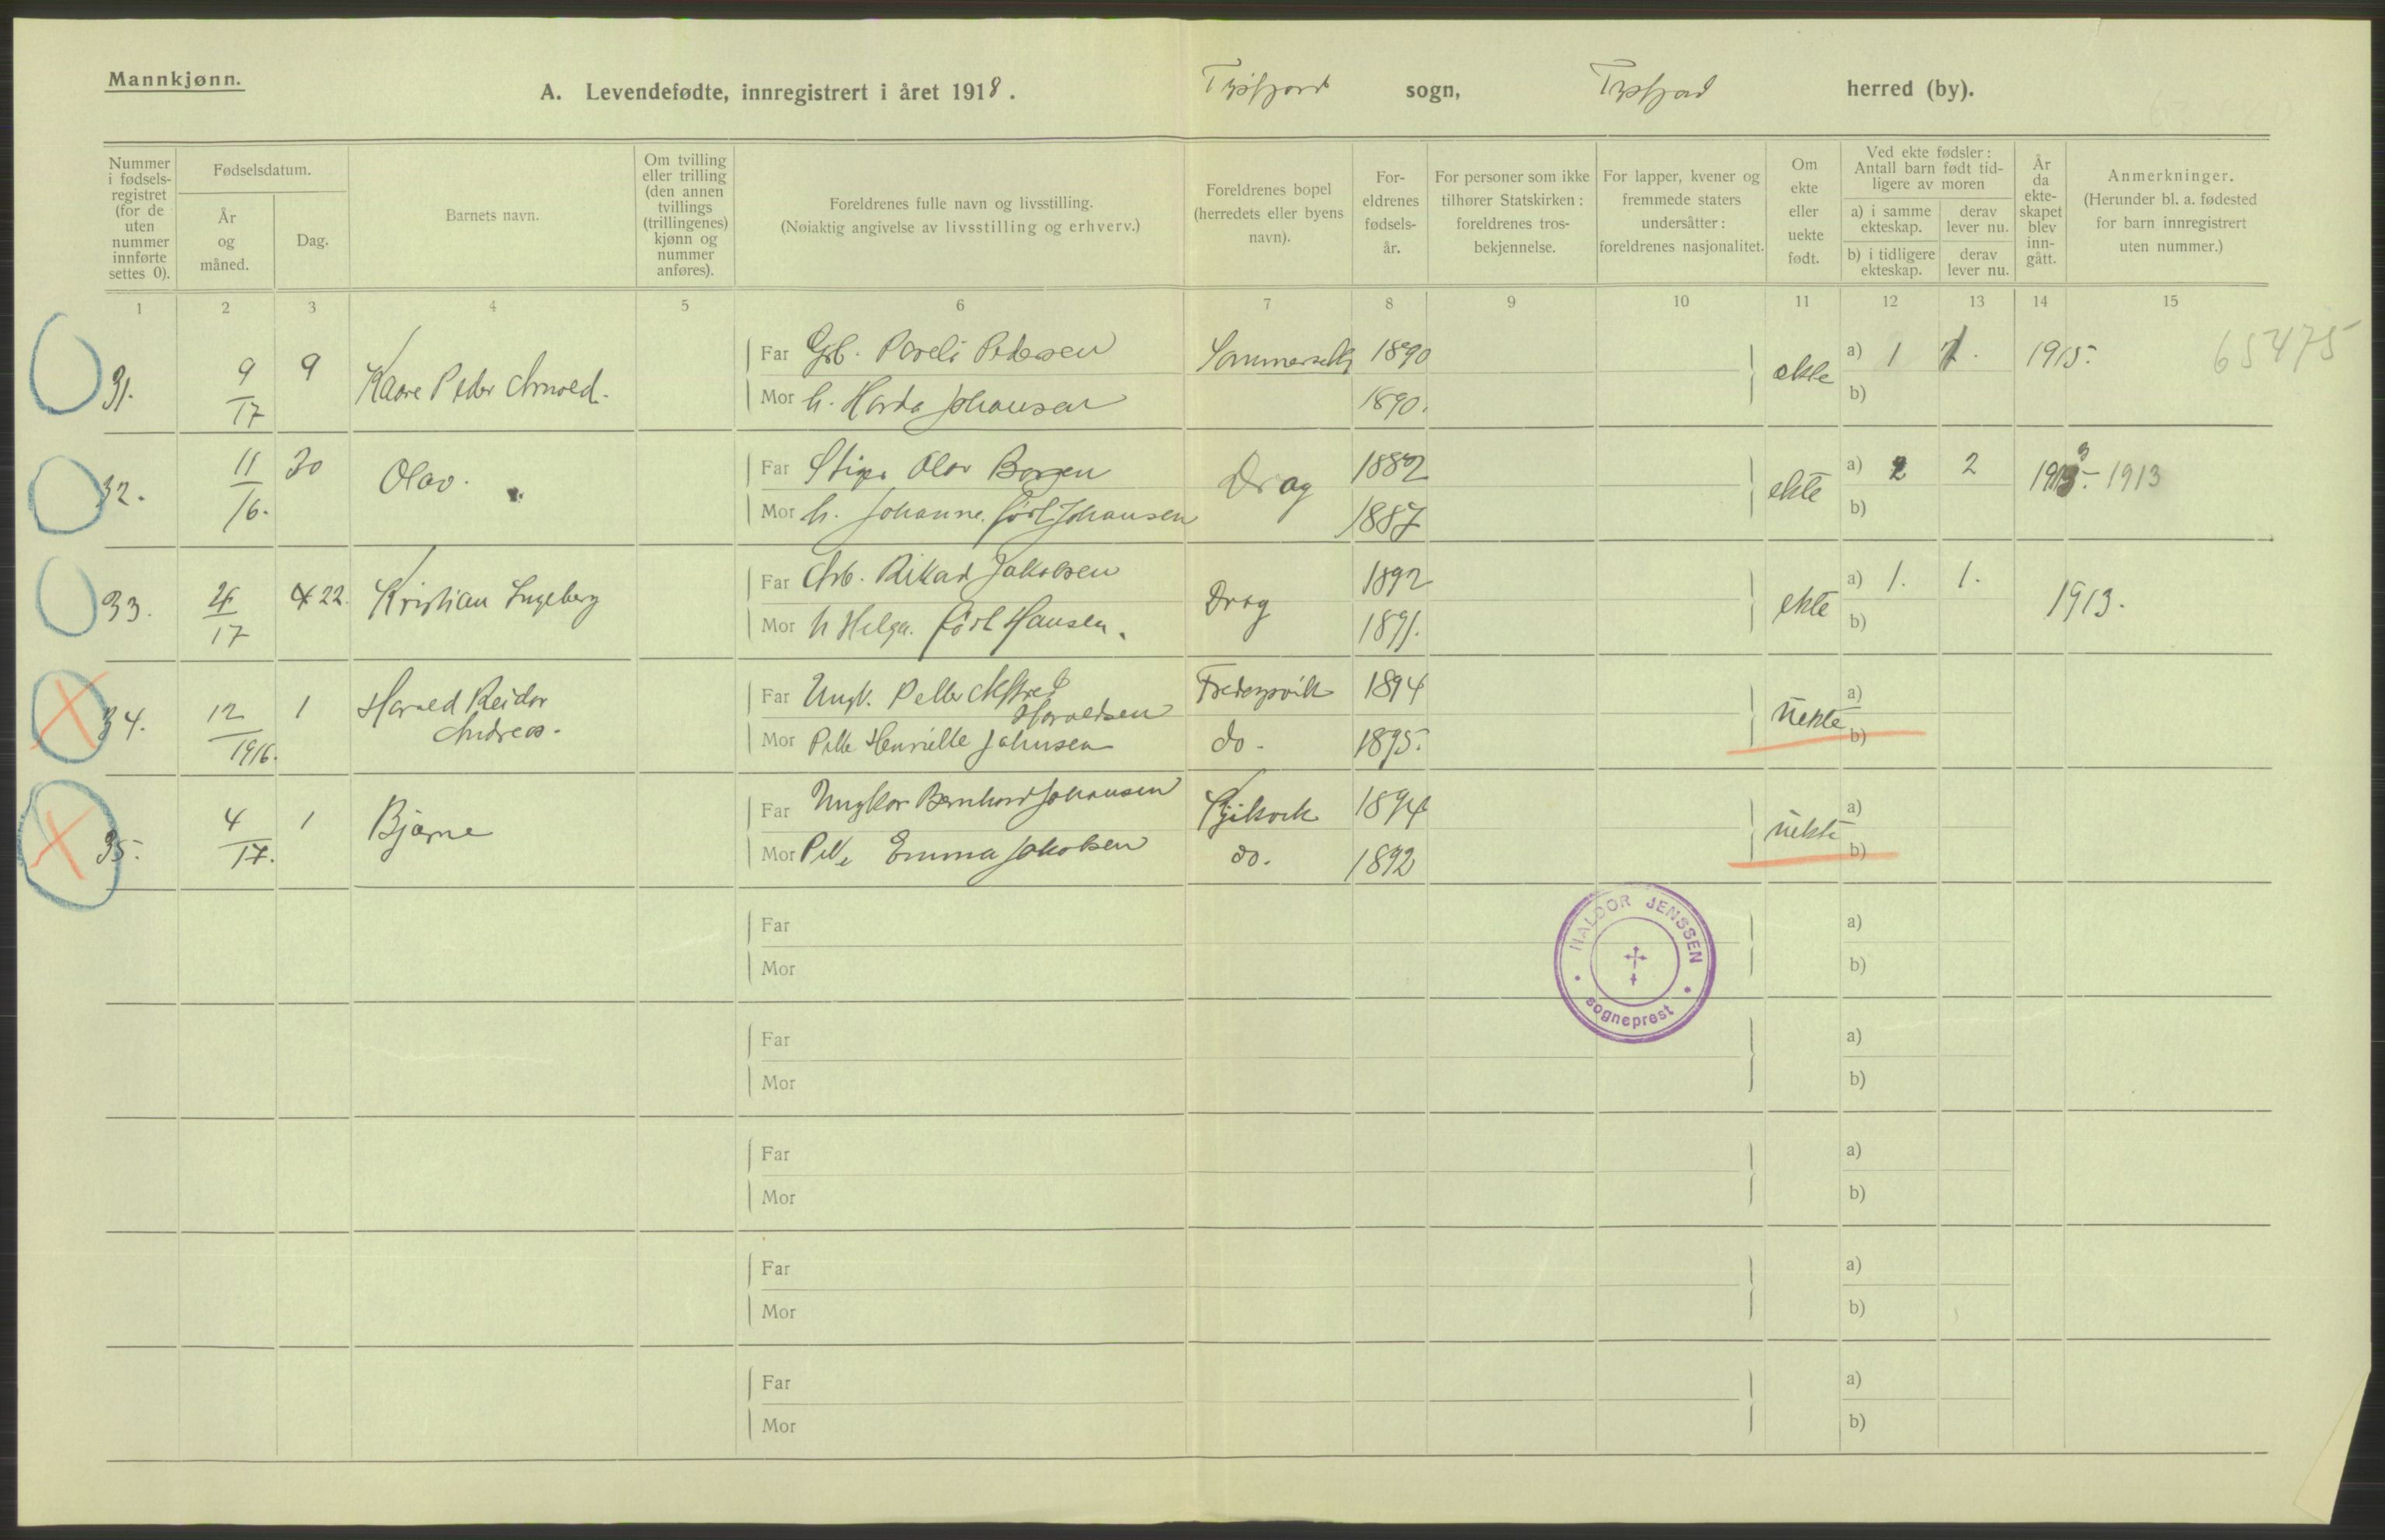 Mannkjønn.
A. Levendefødte, innregistrert i året 1918.
Tysfjord sogn, Tysfjord herred (by).
Nummer i fødsels-registret (for de uten nummer innførte settes 0).
Fødselsdatum.
År og måned.
Dag.
Barnets navn.
Om tvilling eller trilling (den annen tvillings (trillingenes) kjønn og nummer anføres).
Foreldrenes fulle navn og livsstilling.
(Nøiaktig angivelse av livsstilling og erhverv.)
Foreldrenes bopel (herredets eller byens navn).
For-eldrenes fødsels-år.
For personer som ikke tilhører Statskirken: foreldrenes tros-bekjennelse.
For lapper, kvener og fremmede staters undersåtter: foreldrenes nasjonalitet.
Om ekte eller uekte født.
Ved ekte fødsler: Antall barn født tid-ligere av moren
a) i samme ekteskap.
derav lever nu.
b) i tidligere ekteskap.
derav lever nu.
År da ekte-skapet blev inn-gått.
Anmerkninger.
(Herunder bl. a. fødested for barn innregistrert uten nummer.)
1 2 3 4 5 6 7 8 9 10 11 12 13 14 15
31. 9/17 9 Kaare Peder Arnold.
Far Gsb. Pedersen 1890
Mor h. Johansen 1890.
ekte a) 1 1. 1915. 65475
b)
32. 11/16. 30 Olav.
Far Olav 1882
Mor h. Johanne født Johansen 1887
Drag ekte a) 2 2 1913
b)
33. 17 22. Kristian Ingeberg
Far Arb. Rikard Jakobsen 1892
Mor h Helga født Hansen. 1891.
Drag ekte a) 1. 1. 1913.
b)
34. 12/1916. 1 Harald Reidar Andreas.
Far Ungk. Peder Haraldsen 1894
Mor Pike Henriette Johnsen do. 1895.
uekte a)
b)
35. 4/17. 1 Bjarne
Far Ungkar Bernhard Johansen 1894
Mor Pike Emma Jakobsen do. 1892
uekte a)
b)
Far a)
Mor b)
HALDOR JENSSEN
sogneprest
Far a)
Mor b)
Far a)
Mor b)
Far a)
Mor b)
Far a)
Mor b)